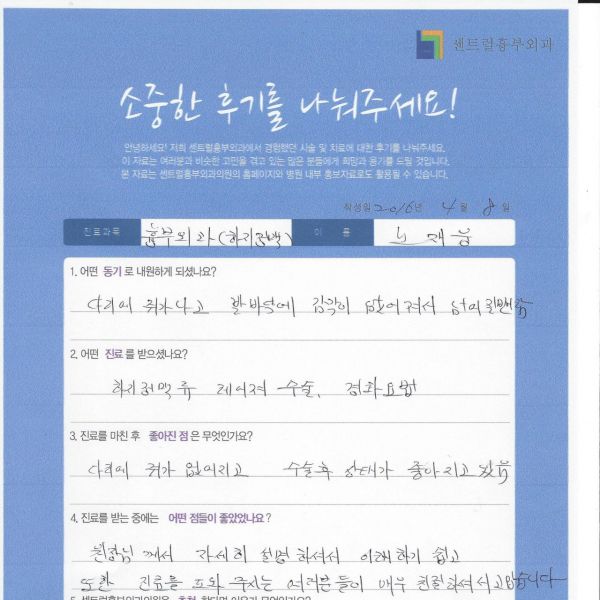 센트럴흉부외과
소중한 후기를 나눠주세요!
안녕하세요! 저희 센트럴흉부외과에서 경험했던 시술 및 치료에 대한 후기를 나눠주세요.
이 자료는 여러분과 비슷한 고민을 겪고 있는 많은 분들에게 희망과 용기를 드릴 것입니다.
본 자료는 센트럴흉부외과의원의 홈페이지와 병원 내부 홍보자료로도 활용될 수 있습니다.
작성일 2016년 4월 8일
진료과목 흉부외과(하지정맥) 이 름 노재웅
1. 어떤 동기로 내원하게 되셨나요?
다리에 쥐가나고 발바닥에 감각이 없어져서
2. 어떤 진료를 받으셨나요?
하지정맥류 레이저 수술, 경화요법
3. 진료를 마친 후 좋아진 점은 무엇인가요?
다리에 쥐가 없어지고 수술후 상태가 좋아지고 있음
4. 진료를 받는 중에는 어떤 점들이 좋았었나요?
원장님께서 자세히 설명하셔서 이해하기 쉽고
또한 진료를 도와주시는 여러분들이 매우 친절하셔서 고맙습니다
5. 센트럴흉부외과의원을 추천 한다면 이유가 무엇인가요?